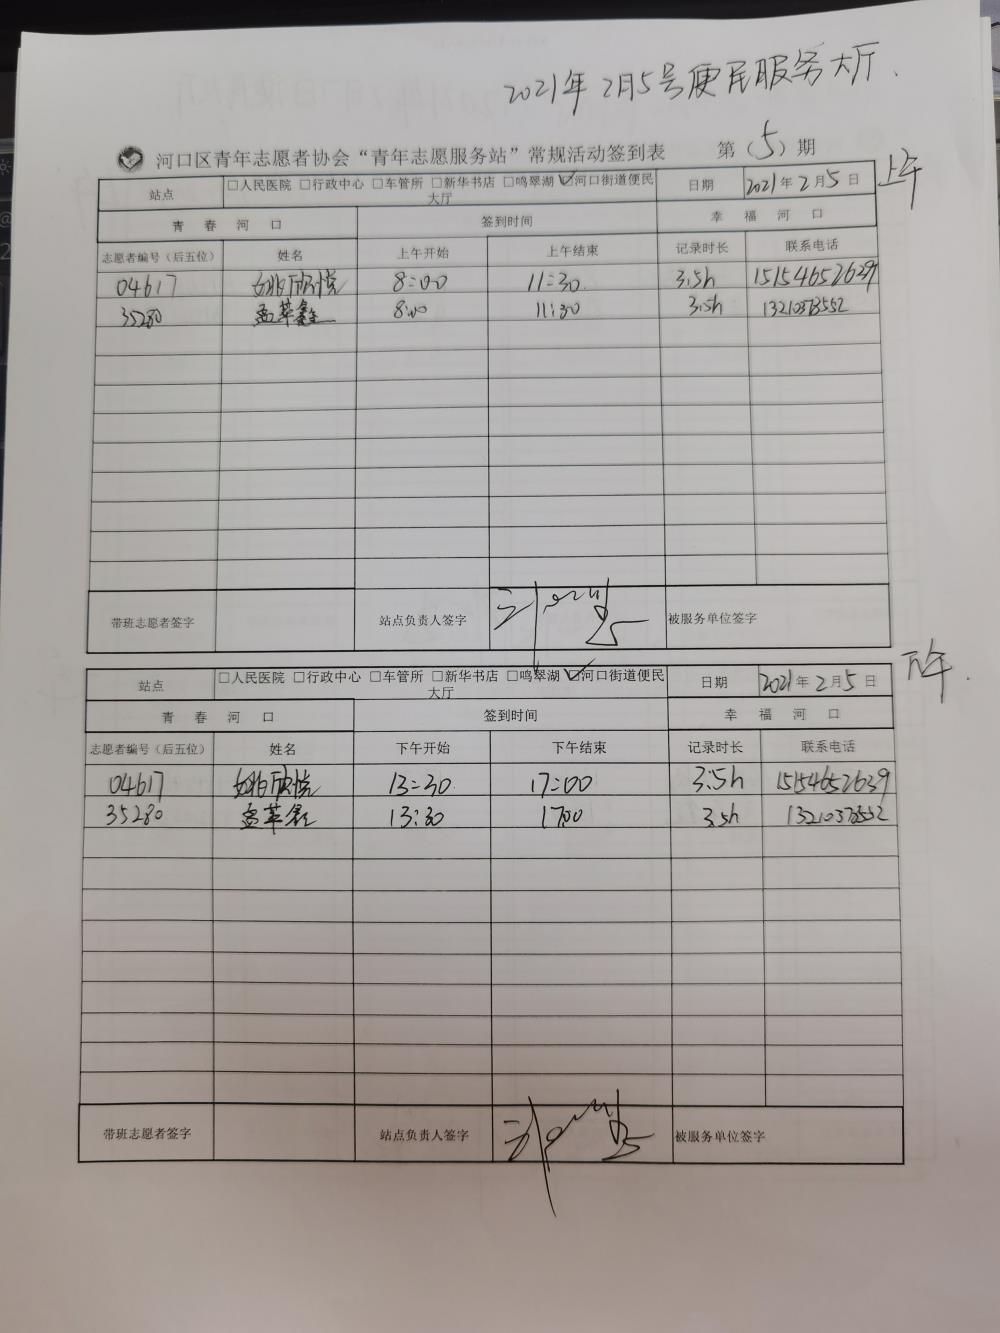 2021年2月5号便民服务大厅.
河口区青年志愿者协会“青年志愿服务站”常规活动签到表 第（5）期
上午
站点 □人民医院 □行政中心 □车管所 □新华书店 □鸣翠湖 ☑河口街道便民大厅 日期 2021年2月5日
青春河口 签到时间 幸福河口
志愿者编号（后五位） 姓名 上午开始 上午结束 记录时长 联系电话
04617 姚欣悦 8:00 11:30 3.5h 15154652639
35280 孟萃鑫 8:00 11:30 3.5h 13210378552
带班志愿者签字 站点负责人签字 被服务单位签字
下午.
站点 □人民医院 □行政中心 □车管所 □新华书店 □鸣翠湖 ☑河口街道便民大厅 日期 2021年2月5日
青春河口 签到时间 幸福河口
志愿者编号（后五位） 姓名 下午开始 下午结束 记录时长 联系电话
04617 姚欣悦 13:30 17:00 3.5h 15154652639
35280 孟萃鑫 13:30 17:00 3.5h 13210378552
带班志愿者签字 站点负责人签字 被服务单位签字